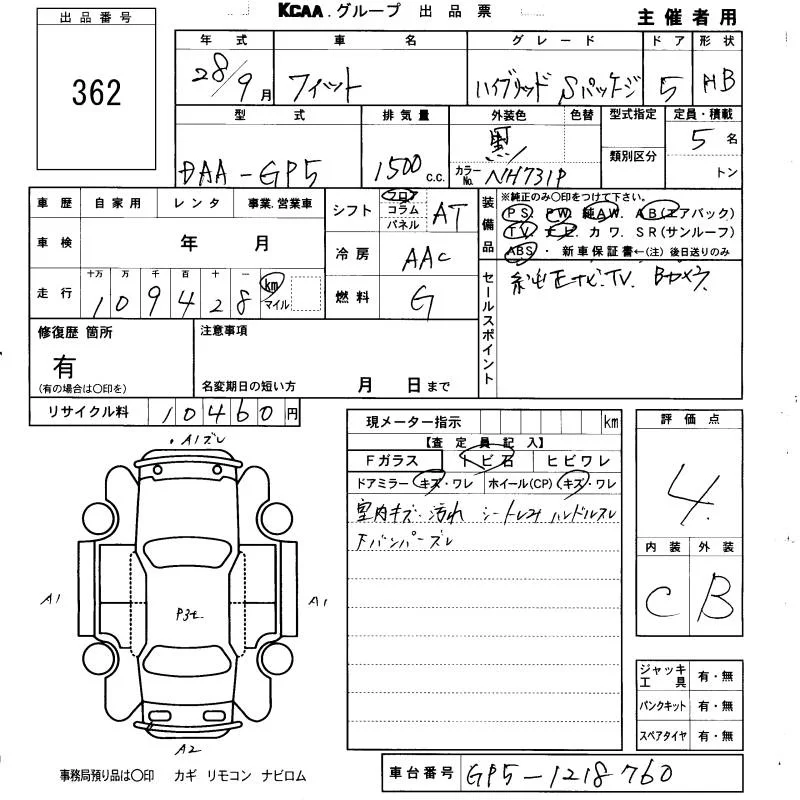 KCAA.グループ 出品票
主催者用
出品番号
362
年式 車名 グレード ドア 形状
28/9月 フィット ハイブリッド Sパッケージ 5 HB
型式 排気量 外装色 色替 型式指定 定員・積載
DAA-GP5 1500c.c. 黒 カラーNo. NH731P 類別区分 5名
トン
車歴 自家用 レンタ 事業.営業車
車検 年 月
走行 十万 万 千 百 十 一
109428 km マイル
シフト フロア コラム パネル AT
冷房 AAC
燃料 G
装備品 ※純正のみ○印をつけて下さい。
PS. PW. 純AW. AB(エアバック)
TV. ナビ カワ. SR(サンルーフ)
ABS・ 新車保証書←(注) 後日送りのみ
セールスポイント
純正ナビ.TV. Bカメラ
修復歴 箇所
有
(有の場合は○印を)
注意事項
名変期日の短い方 月 日まで
リサイクル料 10460円
現メーター指示 km
【査定員記入】
Fガラス トビ石 ヒビワレ
ドアミラー キズ・ワレ ホイール(CP) キズ・ワレ
室内キズ・汚れ シートレスみ ハンドルスレ
Fバンパーズレ
評価点
4
内装 外装
C B
・A1ズレ
A1
A1
P3セ
A2
ジャッキ工具 有・無
パンクキット 有・無
スペアタイヤ 有・無
事務局預り品は○印 カギ リモコン ナビロム
車台番号 GP5-1218760